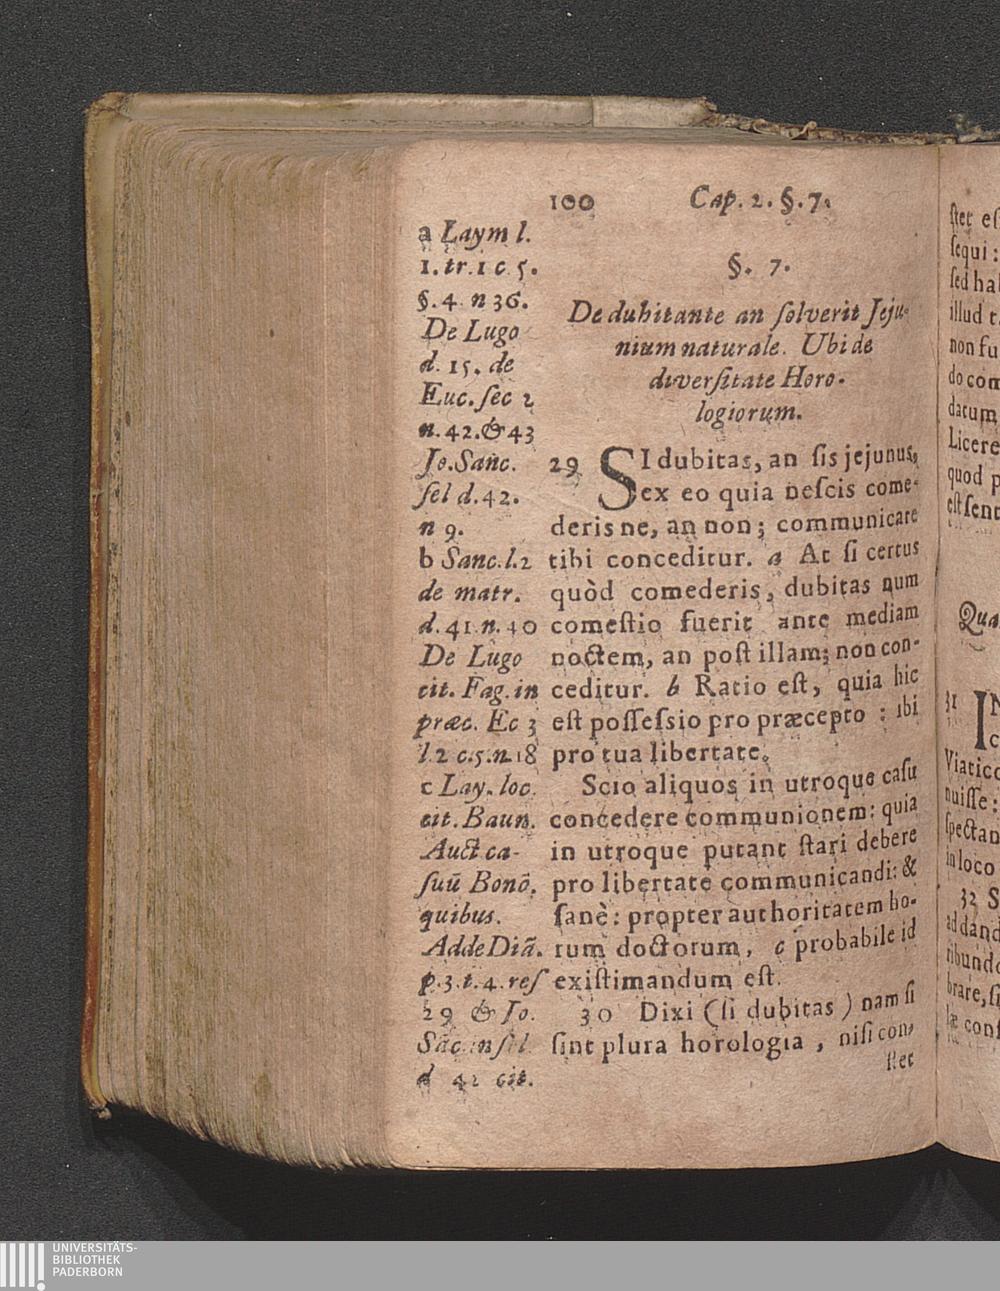 100 Cap. 2. §. 7.
a Laym l.
1. tr. 1 c. 5.
§. 4. n 36.
De Lugo
d. 15. de
Euc. ſec 2
n. 42. & 43
Jo. Sanc.
ſel d. 42.
n 9.
b Sanc. l. 2
de matr.
d. 41. n. 40
De Lugo
cit. Fag. in
præc. Ec 3
l. 2 c. 5. n. 18
c Lay. loc.
cit. Baun.
Auct ca-
ſuū Bonõ.
quibus.
Adde Diã.
p. 3. t. 4. reſ
29 & Jo.
Sãc. in ſel
d 42 cit.
§. 7.
De dubitante an ſolverit Jeju-
nium naturale. Ubi de
diverſitate Horo-
logiorum.
29 SI dubitas, an ſis jejunus,
ex eo quia neſcis come-
deris ne, an non; communicare
tibi conceditur. a At ſi certus
quòd comederis, dubitas num
comeſtio fuerit ante mediam
noctem, an poſt illam; non con-
ceditur. b Ratio eſt, quia hic
eſt poſſeſsio pro præcepto : ibi
pro tua libertate.
Scio aliquos in utroque caſu
concedere communionem: quia
in utroque putant ſtari debere
pro libertate communicandi: &
ſanè: propter authoritatem ho-
rum doctorum, c probabile id
exiſtimandum eſt.
30 Dixi (ſi dubitas) nam ſi
ſint plura horologia, niſi con-
ſtet
ſtet eſ
ſequi:
ſed hab
illud t
non fu
do com
datum
Licere
quod p
eſt ſent
Qua
31 IN
c
Viatico
nuiſſe:
ſpectan
in loco
32 S
ad dand
ribundo
brare, ſi
læ conſ
UNIVERSITÄTS-
BIBLIOTHEK
PADERBORN